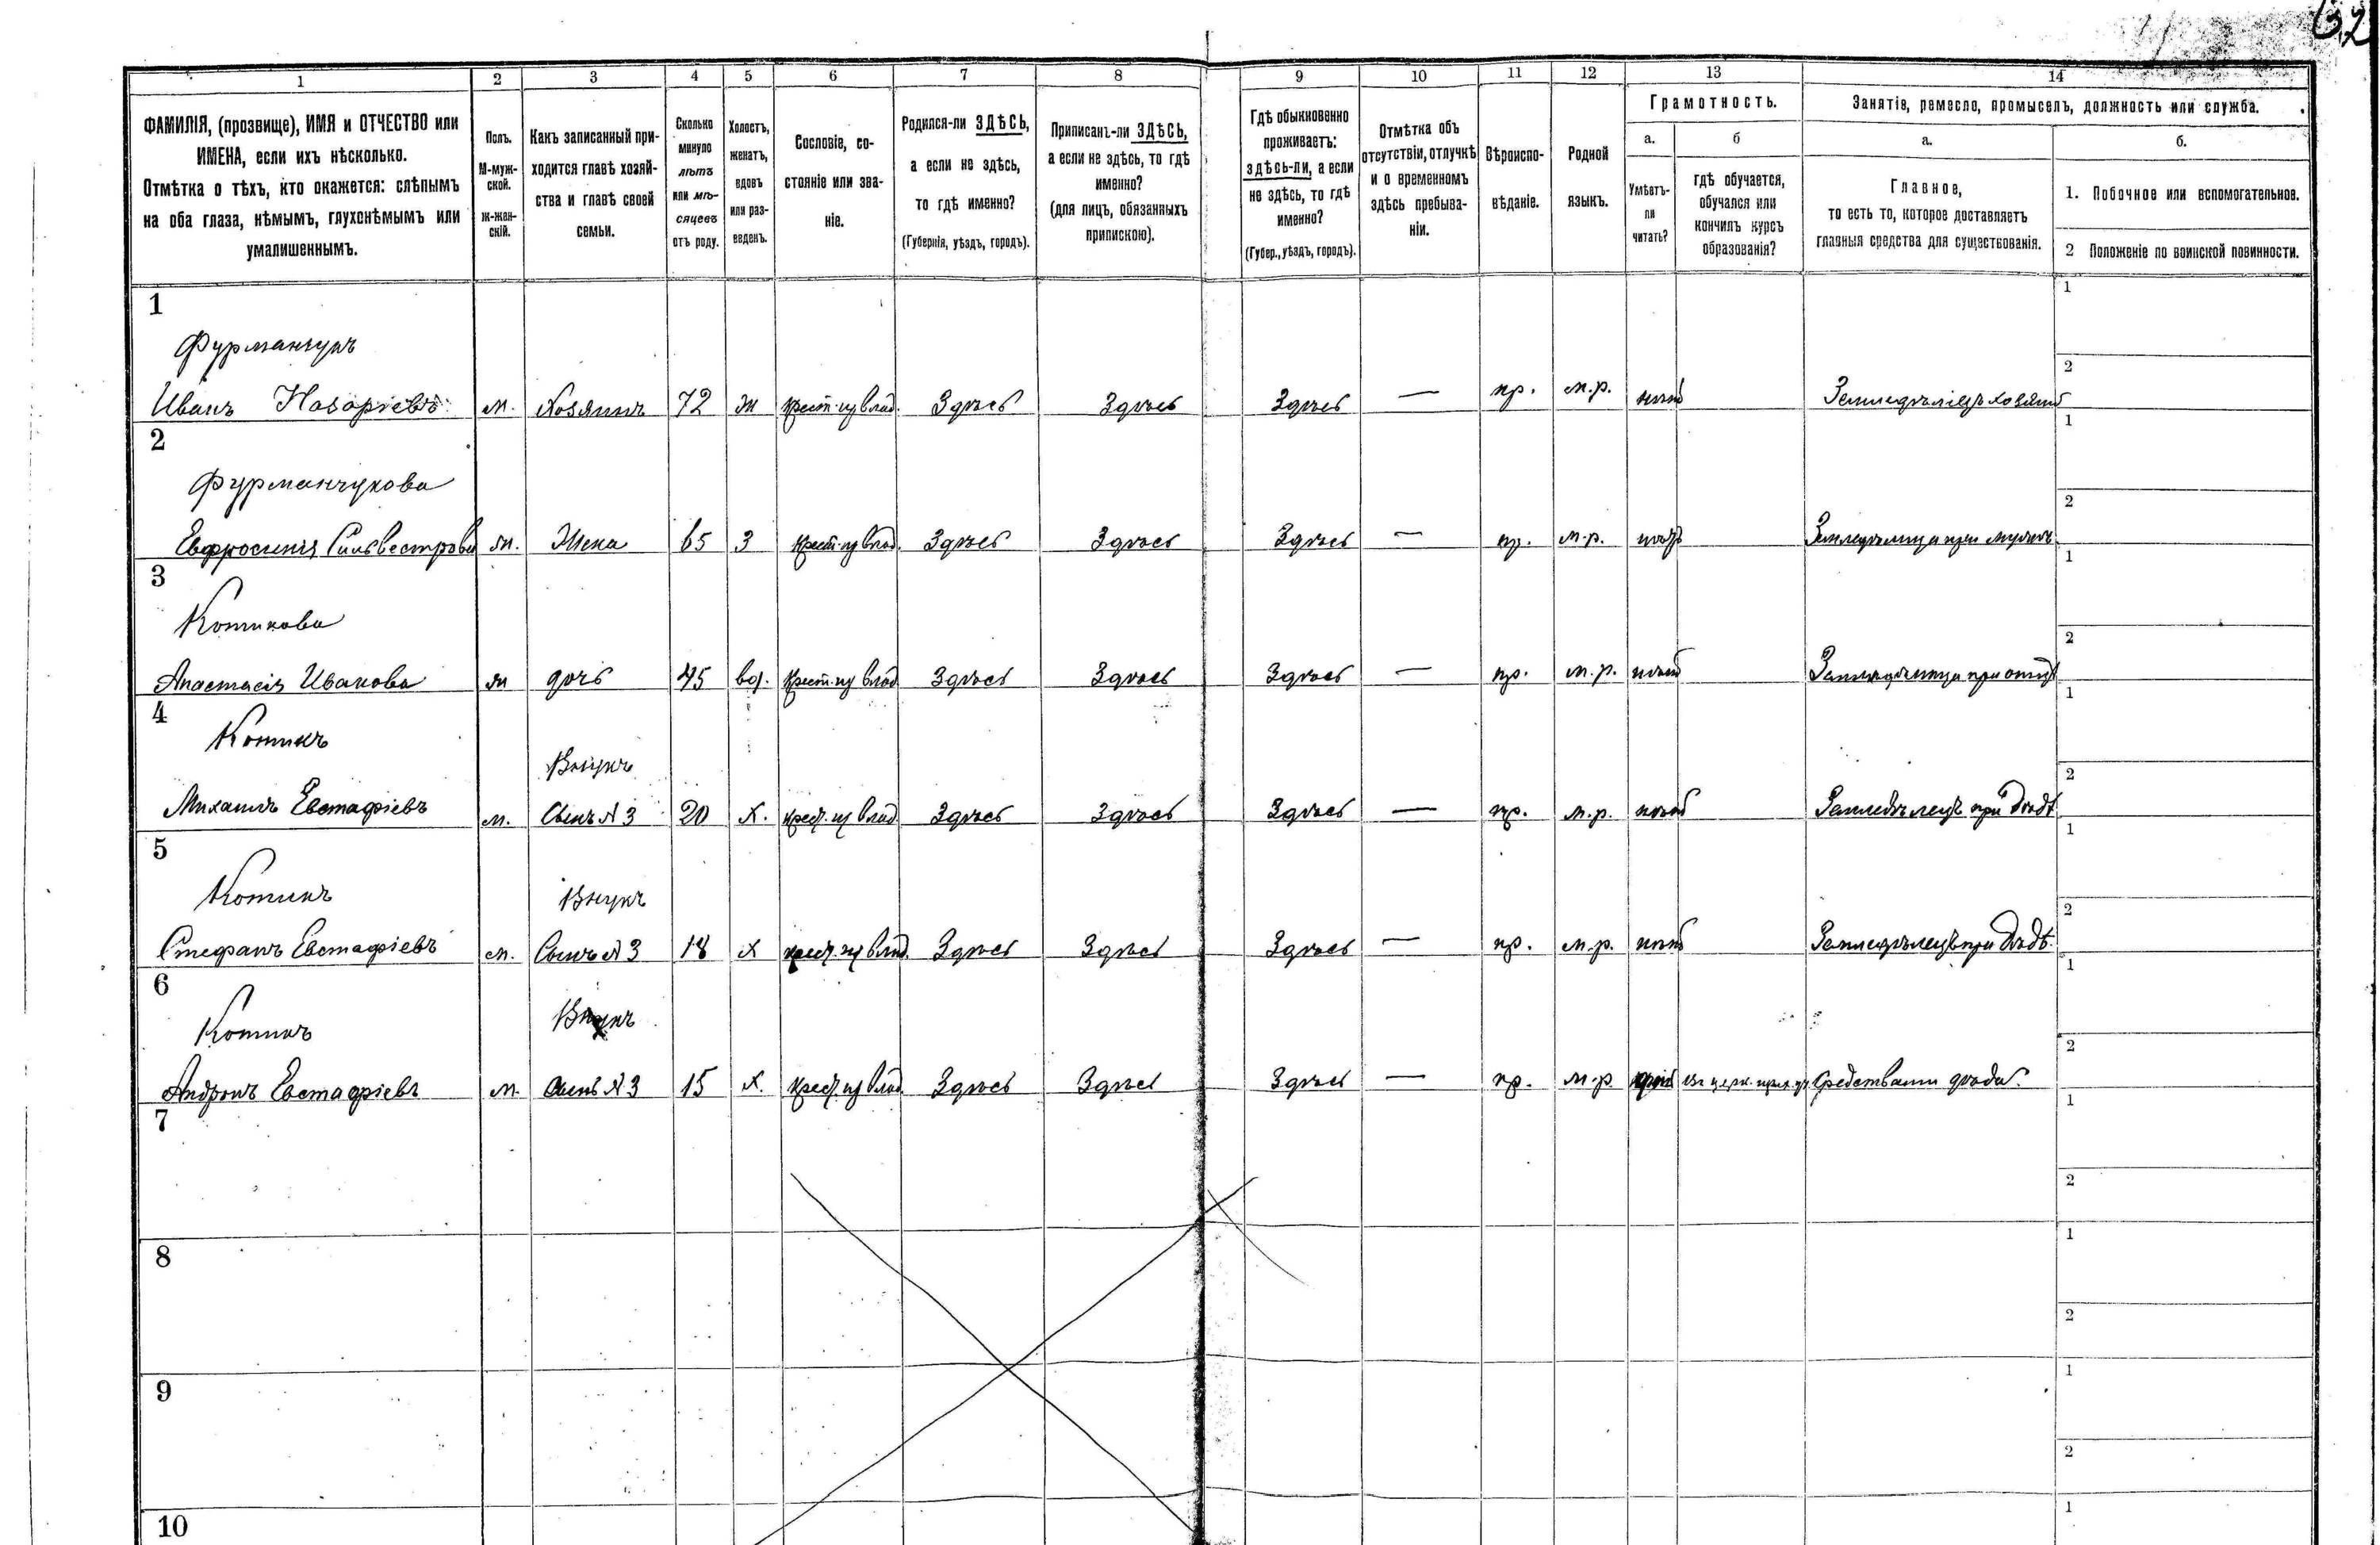 32
1 2 3 4 5 6 7 8 9 10 11 12 13 14
ФАМИЛІЯ, (прозвище), ИМЯ и ОТЧЕСТВО или
ИМЕНА, если ихъ нѣсколько.
Отмѣтка о тѣхъ, кто окажется: слѣпымъ
на оба глаза, нѣмымъ, глухонѣмымъ или
умалишеннымъ.
Полъ.
М-муж-
ской.
ж-жен-
скій.
Какъ записанный при-
ходится главѣ хозяй-
ства и главѣ своей
семьи.
Сколько
минуло
лѣтъ
или мѣ-
сяцевъ
отъ роду.
Холостъ,
женатъ,
вдовъ
или раз-
веденъ.
Сословіе, со-
стояніе или зва-
ніе.
Родился-ли ЗДѢСЬ,
а если не здѣсь,
то гдѣ именно?
(Губернія, уѣздъ, городъ).
Приписанъ-ли ЗДѢСЬ,
а если не здѣсь, то гдѣ
именно?
(для лицъ, обязанныхъ
припискою).
Гдѣ обыкновенно
проживаетъ:
здѣсь-ли, а если
не здѣсь, то гдѣ
именно?
(Губер., уѣздъ, городъ).
Отмѣтка объ
отсутствіи, отлучкѣ
и о временномъ
здѣсь пребыва-
ніи.
Вѣроиспо-
вѣданіе.
Родной
языкъ.
Грамотность.
а.
Умѣетъ-
ли
читать?
б
гдѣ обучается,
обучался или
кончилъ курсъ
образованія?
Занятіе, ремесло, промыселъ, должность или служба.
а.
Главное,
то есть то, которое доставляетъ
главныя средства для существованія.
б.
1. Побочное или вспомогательное.
2 Положеніе по воинской повинности.
1
1
Фурманчукъ
2
Иванъ Назаріевъ м. Хозяинъ 72 ж Крест. из влад. Здѣсь Здѣсь Здѣсь — пр. м.р. нѣтъ Земледѣлецъ хозяинъ
2
1
Фурманчукова
2
Евфросинія Сильвестрова ж. Жена 65 З Крест. из влад. Здѣсь Здѣсь Здѣсь — пр. м.р. нѣтъ Земледѣлица при мужѣ
3
1
Котикова
2
Анастасія Иванова ж дочь 45 вд. Крест. из влад Здѣсь Здѣсь Здѣсь — пр. м.р. нѣтъ Земледѣлица при отцѣ
4
1
Котикъ
Внукъ
2
Михаилъ Евстафіевъ м. Сынъ № 3 20 х. крест. из влад Здѣсь Здѣсь Здѣсь — пр. м.р. нѣтъ Земледѣлецъ при дѣдѣ
5
1
Котикъ
Внукъ
2
Стефанъ Евстафіевъ м. Сынъ № 3 18 х крест. из влад. Здѣсь Здѣсь Здѣсь — пр. м.р. нѣтъ Земледѣлецъ при дѣдѣ.
6
1
Котикъ
Внукъ
2
Андронъ Евстафіевъ м. Сынъ № 3 15 х. Крест. из влад. Здѣсь Здѣсь Здѣсь — пр. м.р. въ церк. Средствами дѣда.
7
1
2
8
1
2
9
1
2
10
1